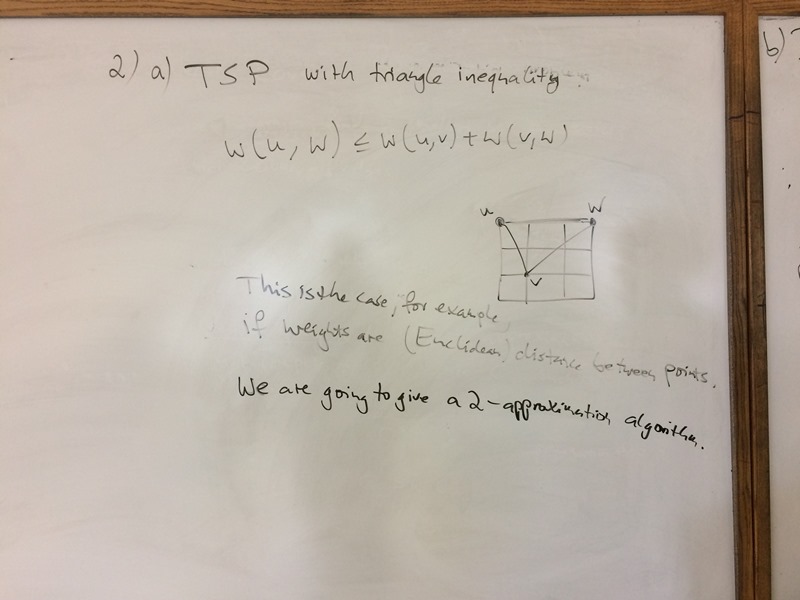 2) a) TSP with triangle inequality.
w(u, w) ≤ w(u,v) + w(v,w)
u w
v
This is the case, for example,
if weights are (Euclidean) distance between points.
We are going to give a 2-approximation algorithm.
b)